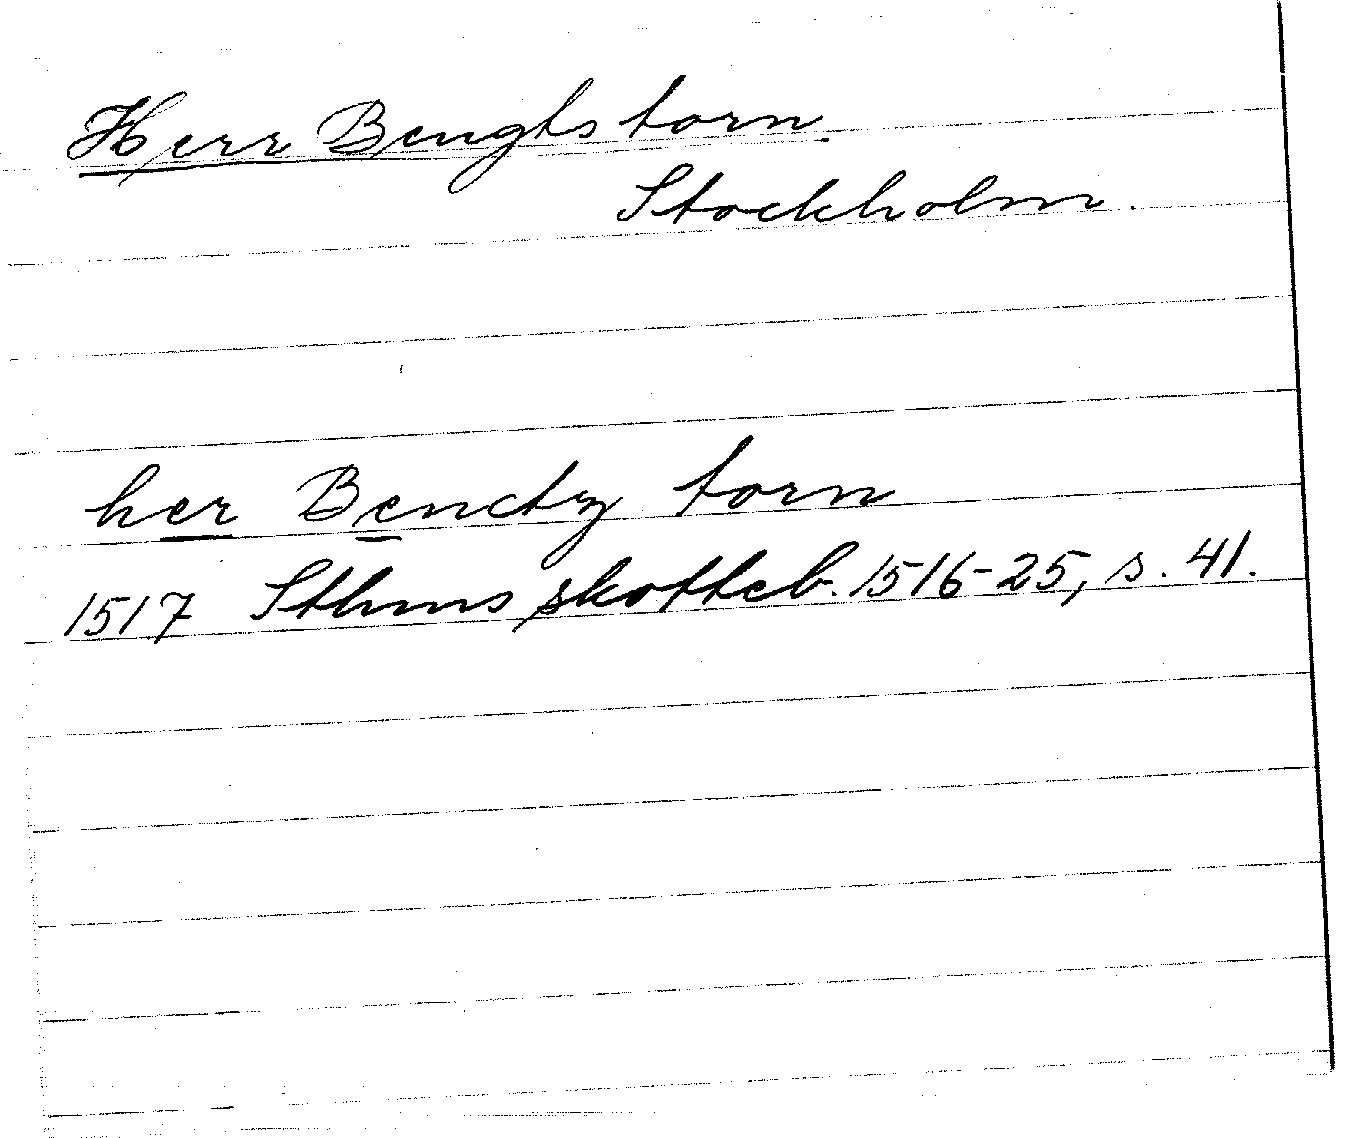 Herr Bengts torn.
Stockholm.
her Benctz torn
1517 Sthms skotteb. 1516-25, s. 41.